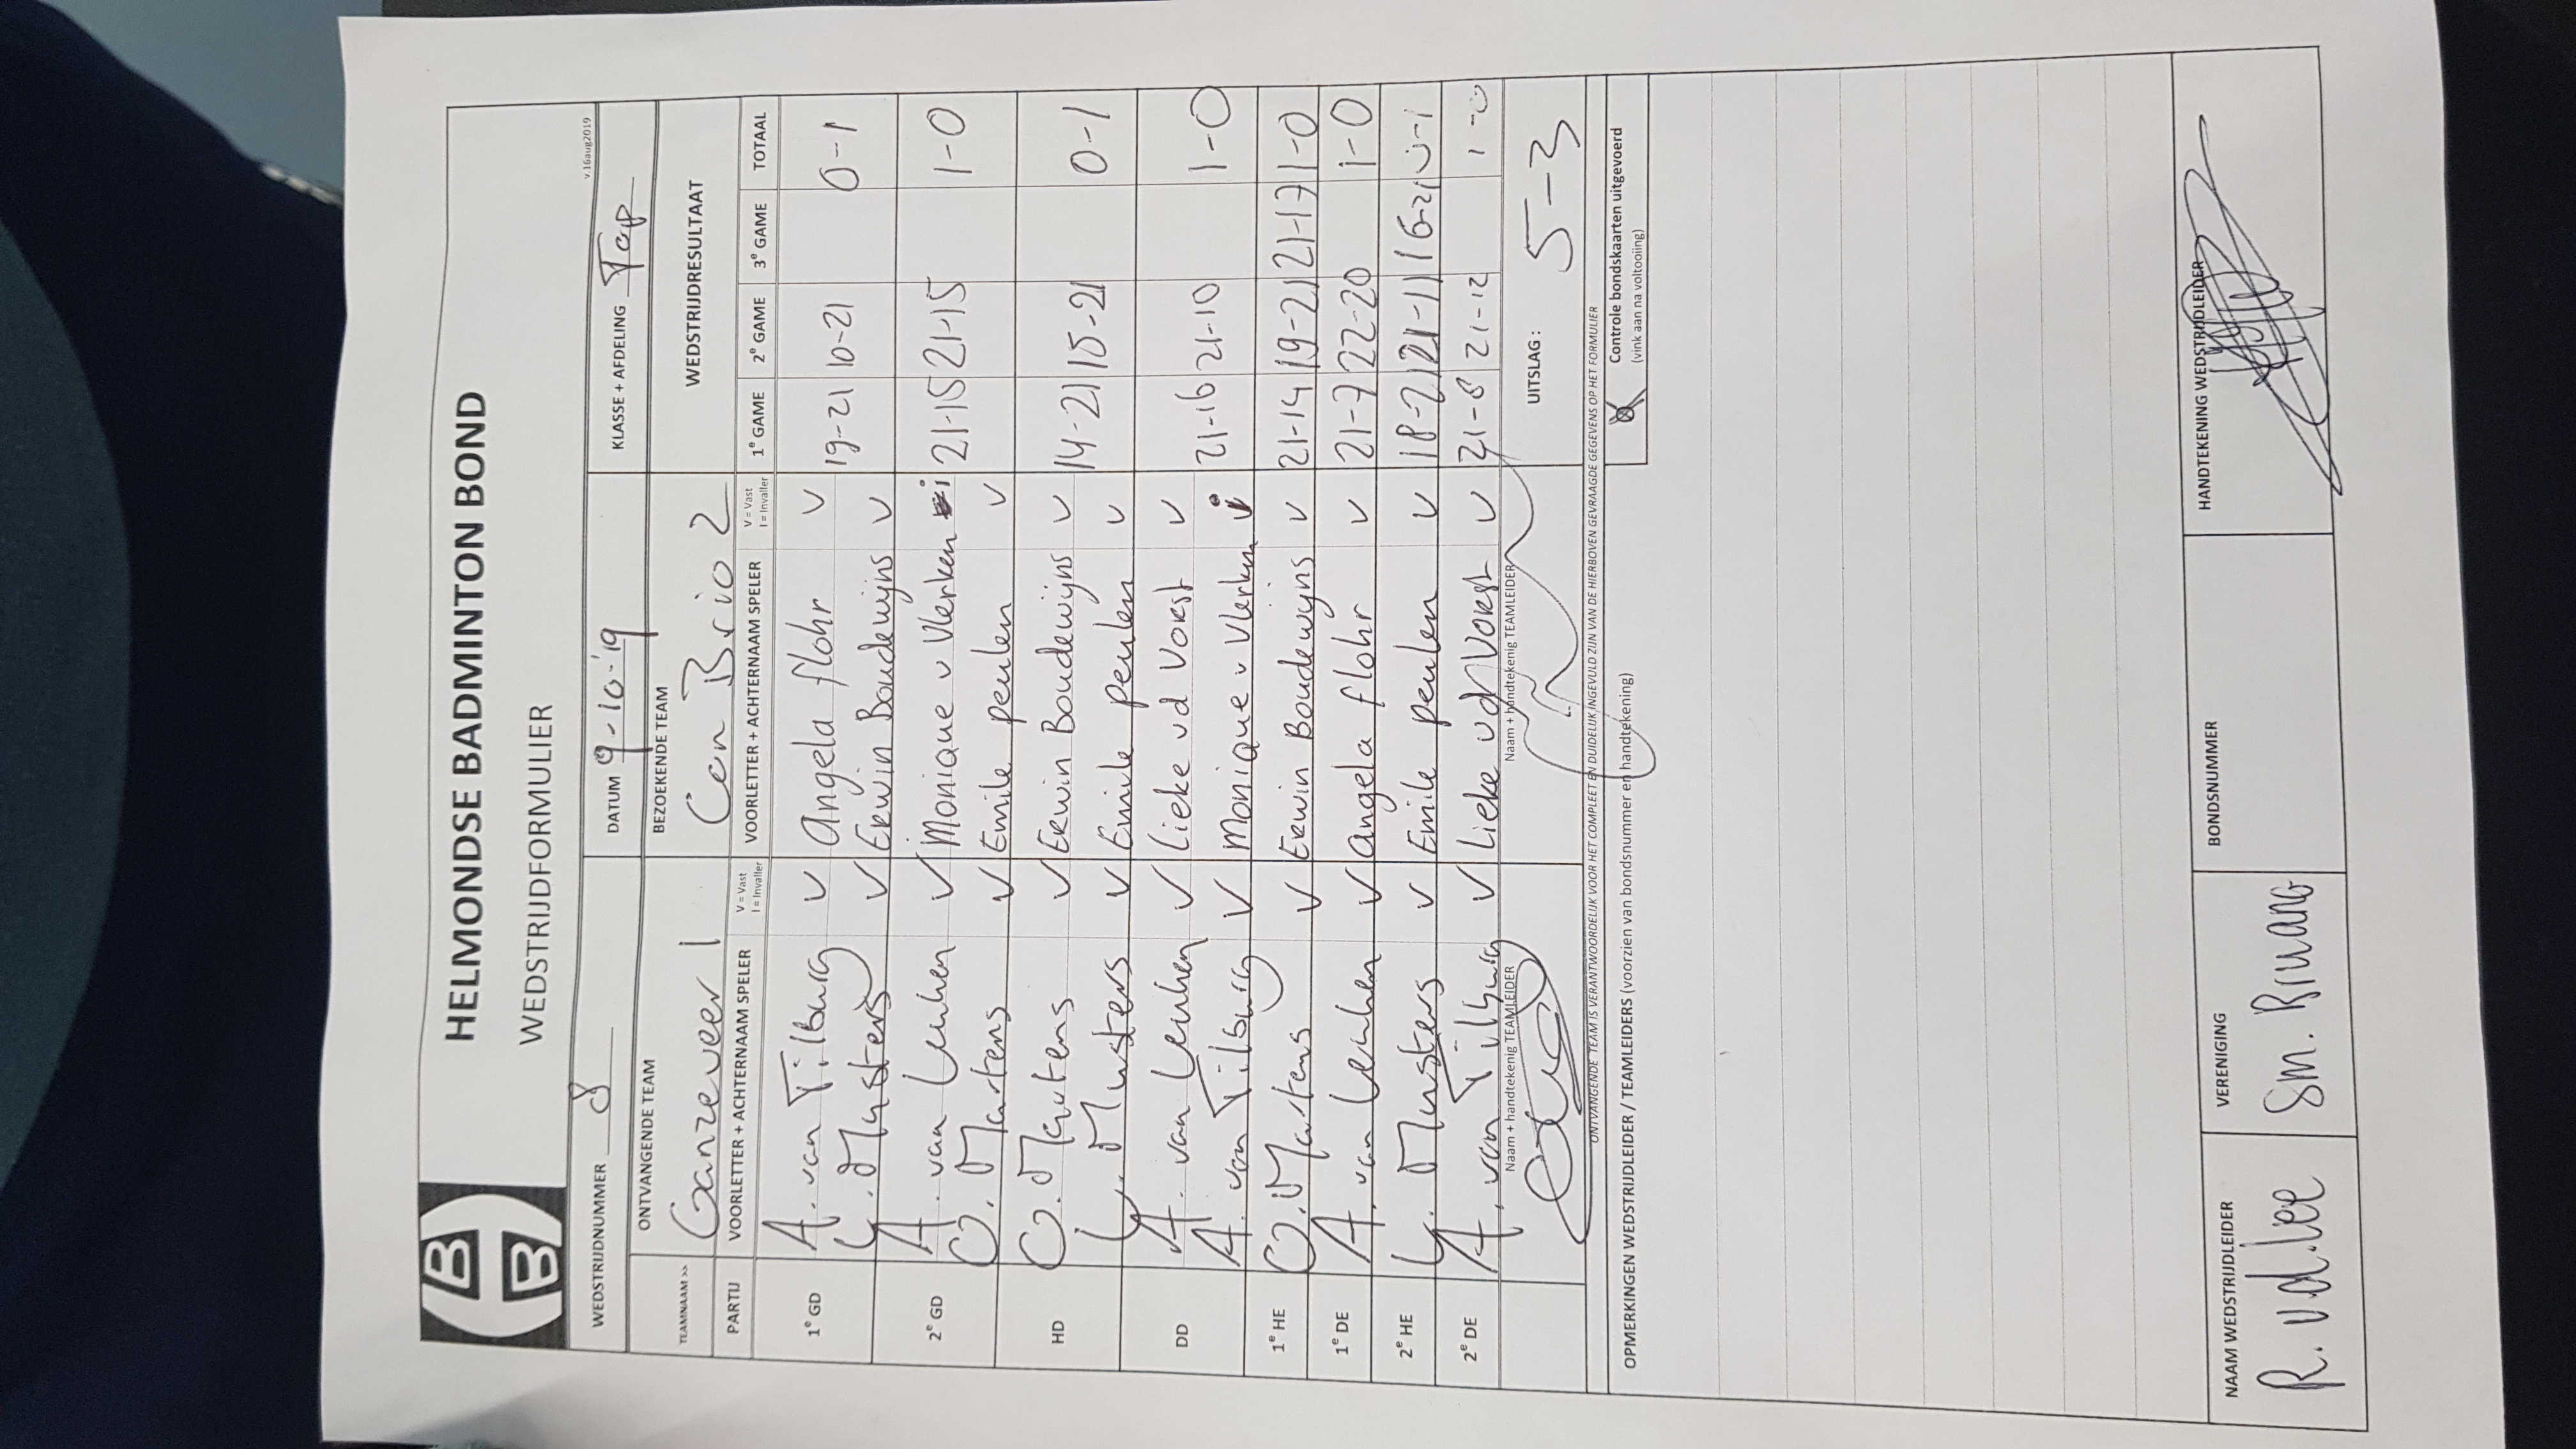 HELMONDSE BADMINTON BOND
WEDSTRIJDFORMULIER
v.16aug2019
WEDSTRIJDNUMMER 8 DATUM 9-10-'19 KLASSE + AFDELING Top
ONTVANGENDE TEAM BEZOEKENDE TEAM WEDSTRIJDRESULTAAT
TEAMNAAM >> Ganzeveer 1 Con Brio 2
PARTIJ VOORLETTER + ACHTERNAAM SPELER V = Vast I = Invaller VOORLETTER + ACHTERNAAM SPELER V = Vast I = Invaller 1e GAME 2e GAME 3e GAME TOTAAL
1e GD A. van Tilburg V Angela flohr V 19-21 10-21 0-1
Y. Musters V Erwin Boudewijns V
2e GD A. van Leuken V Monique v Vlerken i 21-15 21-15 1-0
O. Martens V Emile peulen V
HD O. Martens V Erwin Boudewijns V 14-21 15-21 0-1
Y. Musters V Emile peulen V
DD A. van Leuken V Lieke vd Vorst V 21-16 21-10 1-0
A. van Tilburg V Monique v Vlerken i
1e HE O. Martens V Erwin Boudewijns V 21-14 19-21 21-17 1-0
1e DE A. van Leuken V Angela flohr V 21-7 22-20 1-0
2e HE Y. Musters V Emile peulen V 18-21 21-11 16-21 0-1
2e DE A. van Tilburg V Lieke vdn Vorst V 21-8 21-12 1-0
Naam + handtekenig TEAMLEIDER Naam + handtekenig TEAMLEIDER UITSLAG: 5-3
ONTVANGENDE TEAM IS VERANTWOORDELIJK VOOR HET COMPLEET EN DUIDELIJK INGEVULD ZIJN VAN DE HIERBOVEN GEVRAAGDE GEGEVENS OP HET FORMULIER
OPMERKINGEN WEDSTRIJDLEIDER / TEAMLEIDERS (voorzien van bondsnummer en handtekening) Controle bondskaarten uitgevoerd
(vink aan na voltooiing)
NAAM WEDSTRIJDLEIDER VERENIGING BONDSNUMMER HANDTEKENING WEDSTRIJDLEIDER
R. vd. Lee